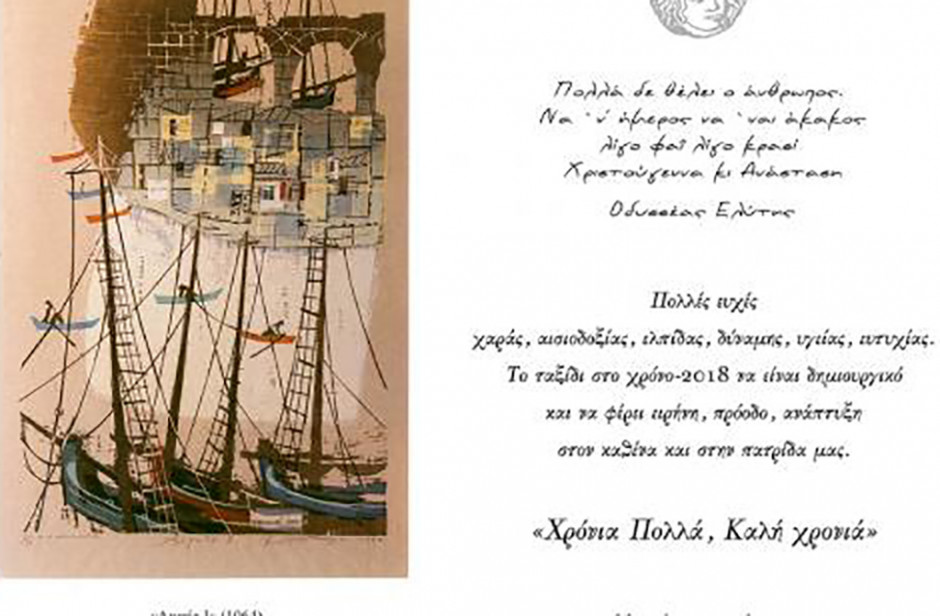 Πολλά δε θέλει ο άνθρωπος.
Να 'ν' ήμερος να 'ναι άκακος
λίγο φαΐ λίγο κρασί
Χριστούγεννα κι Ανάσταση
Οδυσσέας Ελύτης
Πολλές ευχές
χαράς, αισιοδοξίας, ελπίδας, δύναμης, υγιείας, ευτυχίας.
Το ταξίδι στο χρόνο-2018 να είναι δημιουργικό
και να φέρει ειρήνη, πρόοδο, ανάπτυξη
στον καθένα και στην πατρίδα μας.
«Χρόνια Πολλά, Καλή χρονιά»
(1964)